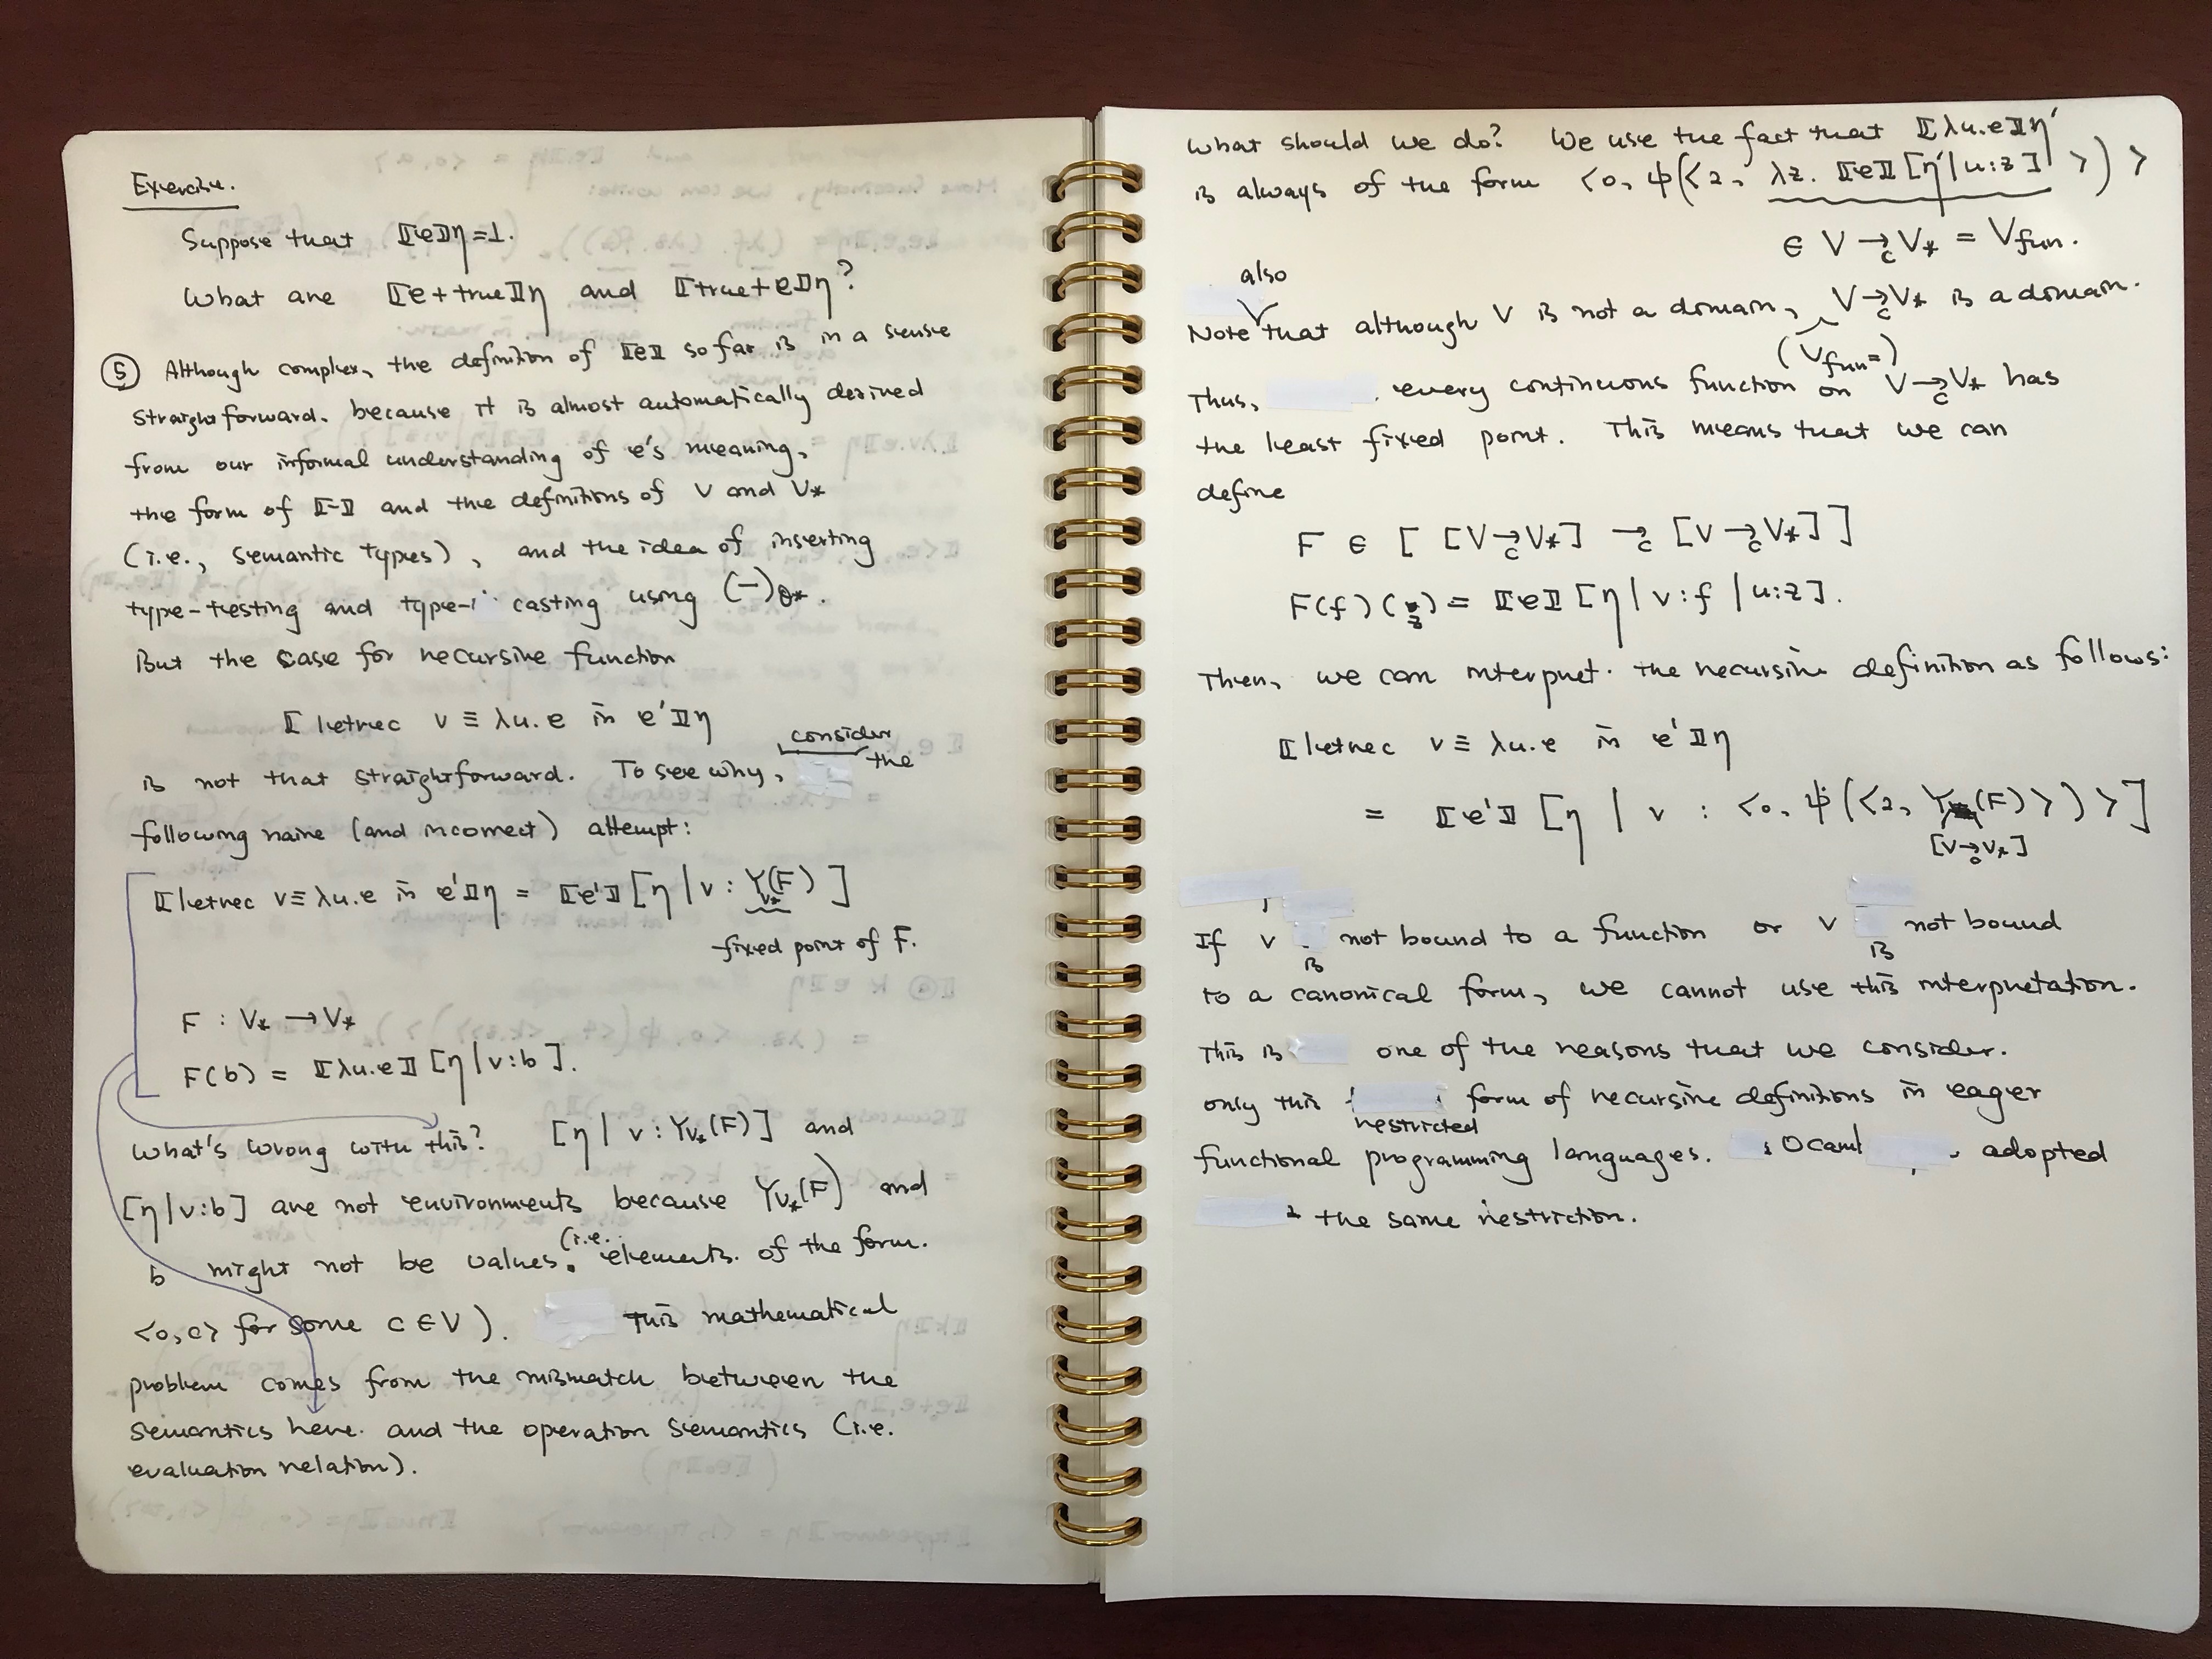 Exercise.
Suppose that ⟦e⟧η=⊥.
What are ⟦e+true⟧η and ⟦true+e⟧η?
⑤ Although complex, the definition of ⟦e⟧ so far is in a sense
straightforward. because it is almost automatically derived
from our informal understanding of e's meaning,
the form of ⟦-⟧ and the definitions of V and V*
(i.e., semantic types), and the idea of inserting
type-testing and type- casting using (-)θ*.
But the case for recursive function
⟦letrec v ≡ λu.e in e'⟧η
is not that straightforward. To see why, consider the
following naive (and incorrect) attempt:
⟦letrec v≡ λu.e in e'⟧η = ⟦e'⟧[η | v : Y_V*(F)]
fixed point of F.
F : V* → V*
F(b) = ⟦λu.e⟧[η | v:b].
What's wrong with this? [η | v : Y_V*(F)] and
[η | v:b] are not environments because Y_V*(F) and
b might not be values. (i.e. elements. of the form.
<0, c> for some c ∈ V). This mathematical
problem comes from the mismatch between the
semantics here. and the operation semantics (i.e.
evaluation relation).
What should we do? We use the fact that ⟦λu.e⟧η'
is always of the form <0, ψ(<2, λz. ⟦e⟧[η' | u:z] >) >
∈ V →c V* = Vfun.
also
Note that although V is not a domain, V →c V* is a domain.
(Vfun=)
Thus, every continuous function on V →c V* has
the least fixed point. This means that we can
define
F ∈ [ [V →c V*] →c [V →c V*] ]
F(f)(z) = ⟦e⟧[η | v:f | u:z].
Then, we can interpret. the recursive definition as follows:
⟦letrec v ≡ λu.e in e'⟧η
= ⟦e'⟧[η | v : <0, ψ(<2, Y(F) >) >]
[V →c V*]
If v is not bound to a function or v is not bound
to a canonical form, we cannot use this interpretation.
This is one of the reasons that we consider.
only this restricted form of recursive definitions in eager
functional programming languages. Ocaml adopted
the same restriction.